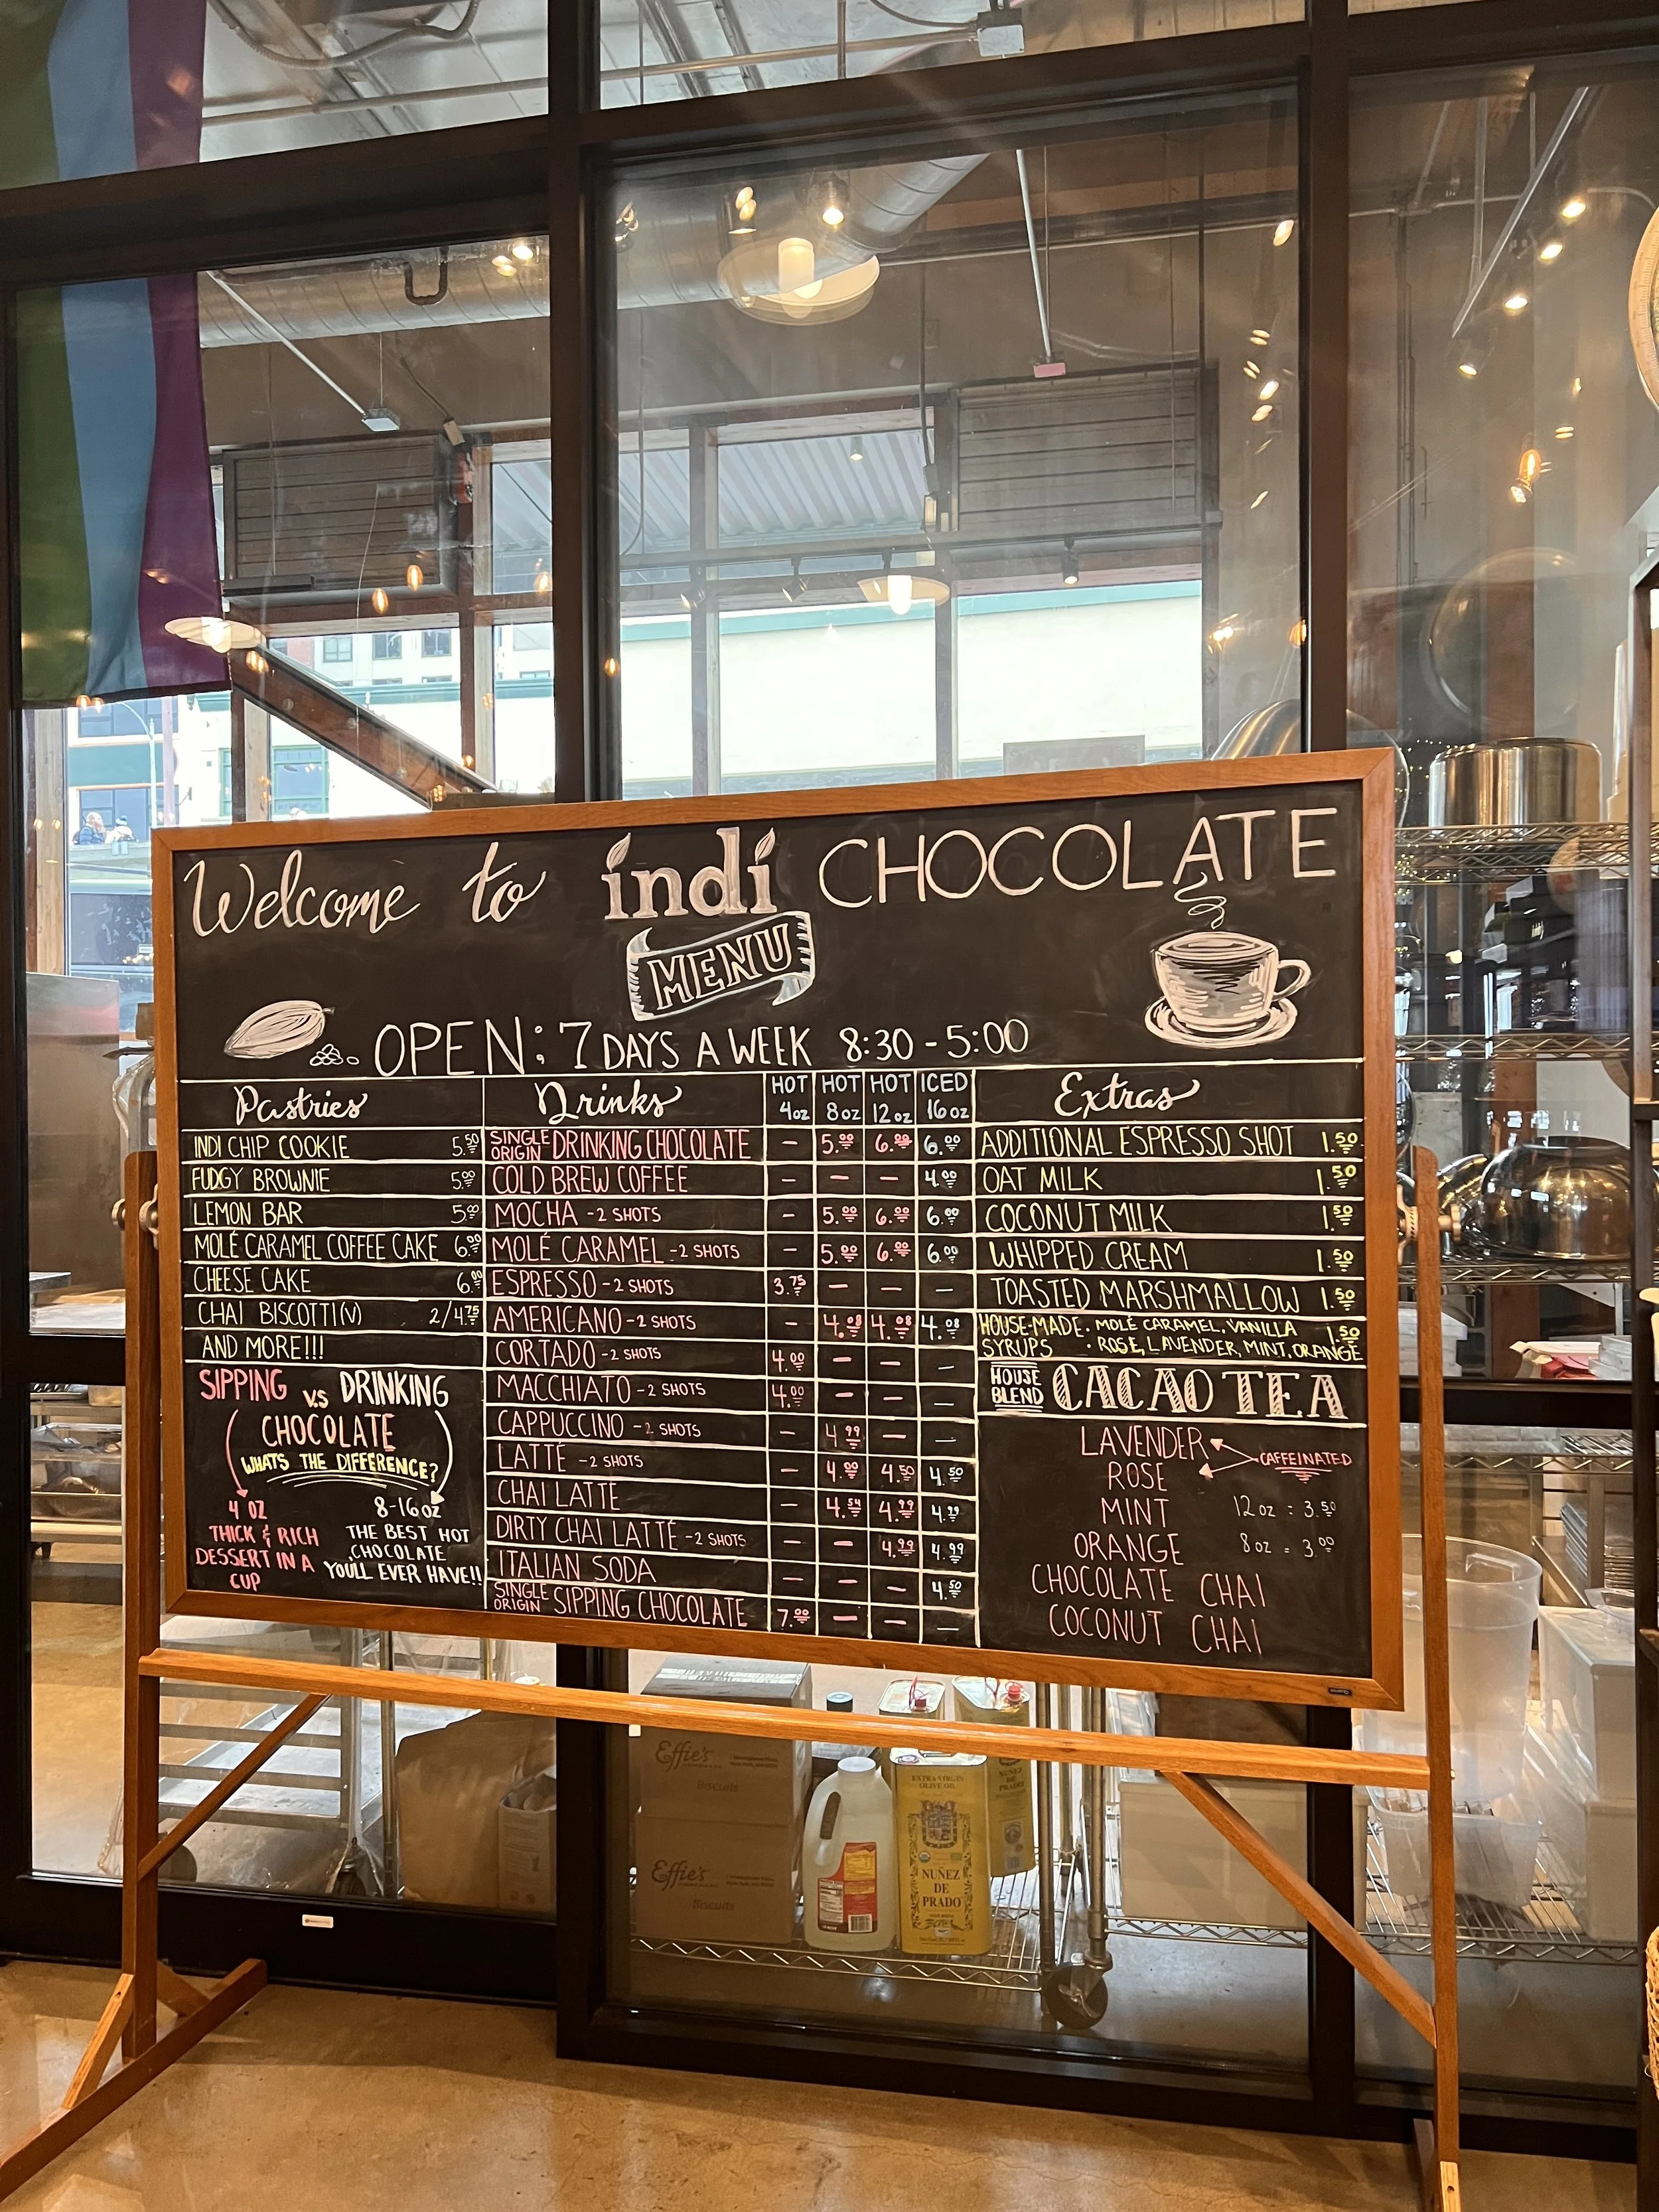 Welcome to indi CHOCOLATE
MENU
OPEN: 7 DAYS A WEEK 8:30 - 5:00
Pastries
INDI CHIP COOKIE 5.50
FUDGY BROWNIE 5.00
LEMON BAR 5.00
MOLÉ CARAMEL COFFEE CAKE 6.00
CHEESE CAKE 6.00
CHAI BISCOTTI(V) 2/4.75
AND MORE!!!
SIPPING VS DRINKING
CHOCOLATE
WHATS THE DIFFERENCE?
4 OZ
THICK & RICH
DESSERT IN A
CUP
8-16oz
THE BEST HOT
CHOCOLATE
YOU'LL EVER HAVE!!
Drinks HOT 4oz HOT 8oz HOT 12oz ICED 16oz
SINGLE ORIGIN DRINKING CHOCOLATE - 5.00 6.00 6.00
COLD BREW COFFEE - - - 4.00
MOCHA -2 SHOTS - 5.00 6.00 6.00
MOLÉ CARAMEL -2 SHOTS - 5.00 6.00 6.00
ESPRESSO -2 SHOTS 3.75 - - -
AMERICANO -2 SHOTS - 4.08 4.08 4.08
CORTADO -2 SHOTS 4.00 - - -
MACCHIATO -2 SHOTS 4.00 - - -
CAPPUCCINO -2 SHOTS - 4.99 - -
LATTÉ -2 SHOTS - 4.00 4.50 4.50
CHAI LATTE - 4.54 4.99 4.99
DIRTY CHAI LATTÉ -2 SHOTS - - 4.99 4.99
ITALIAN SODA - - - 4.50
SINGLE ORIGIN SIPPING CHOCOLATE 7.00 - - -
Extras
ADDITIONAL ESPRESSO SHOT 1.50
OAT MILK 1.50
COCONUT MILK 1.50
WHIPPED CREAM 1.50
TOASTED MARSHMALLOW 1.50
HOUSE-MADE SYRUPS
• MOLÉ CARAMEL, VANILLA
• ROSE, LAVENDER, MINT, ORANGE 1.50
HOUSE BLEND CACAO TEA
LAVENDER
ROSE
CAFFEINATED
MINT 12oz = 3.50
ORANGE 8oz = 3.00
CHOCOLATE CHAI
COCONUT CHAI
Effie's
Biscuits
Effie's
Biscuits
EXTRA VIRGIN
OLIVE OIL
NUÑEZ
DE
PRADO
NUÑEZ
DE
PRADO